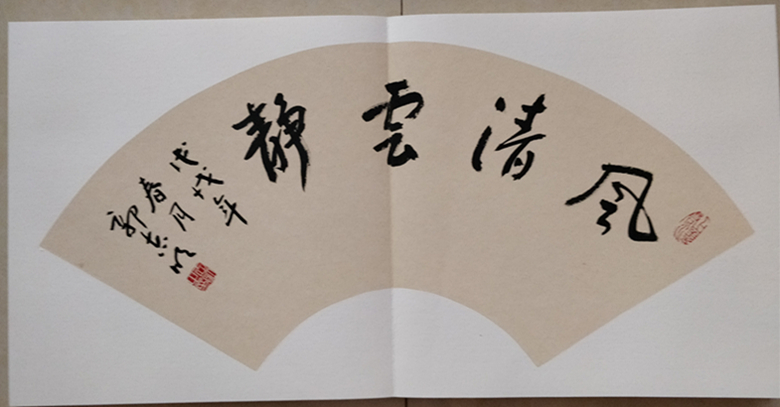 風清雲靜
戊戌年
春月
郭志明